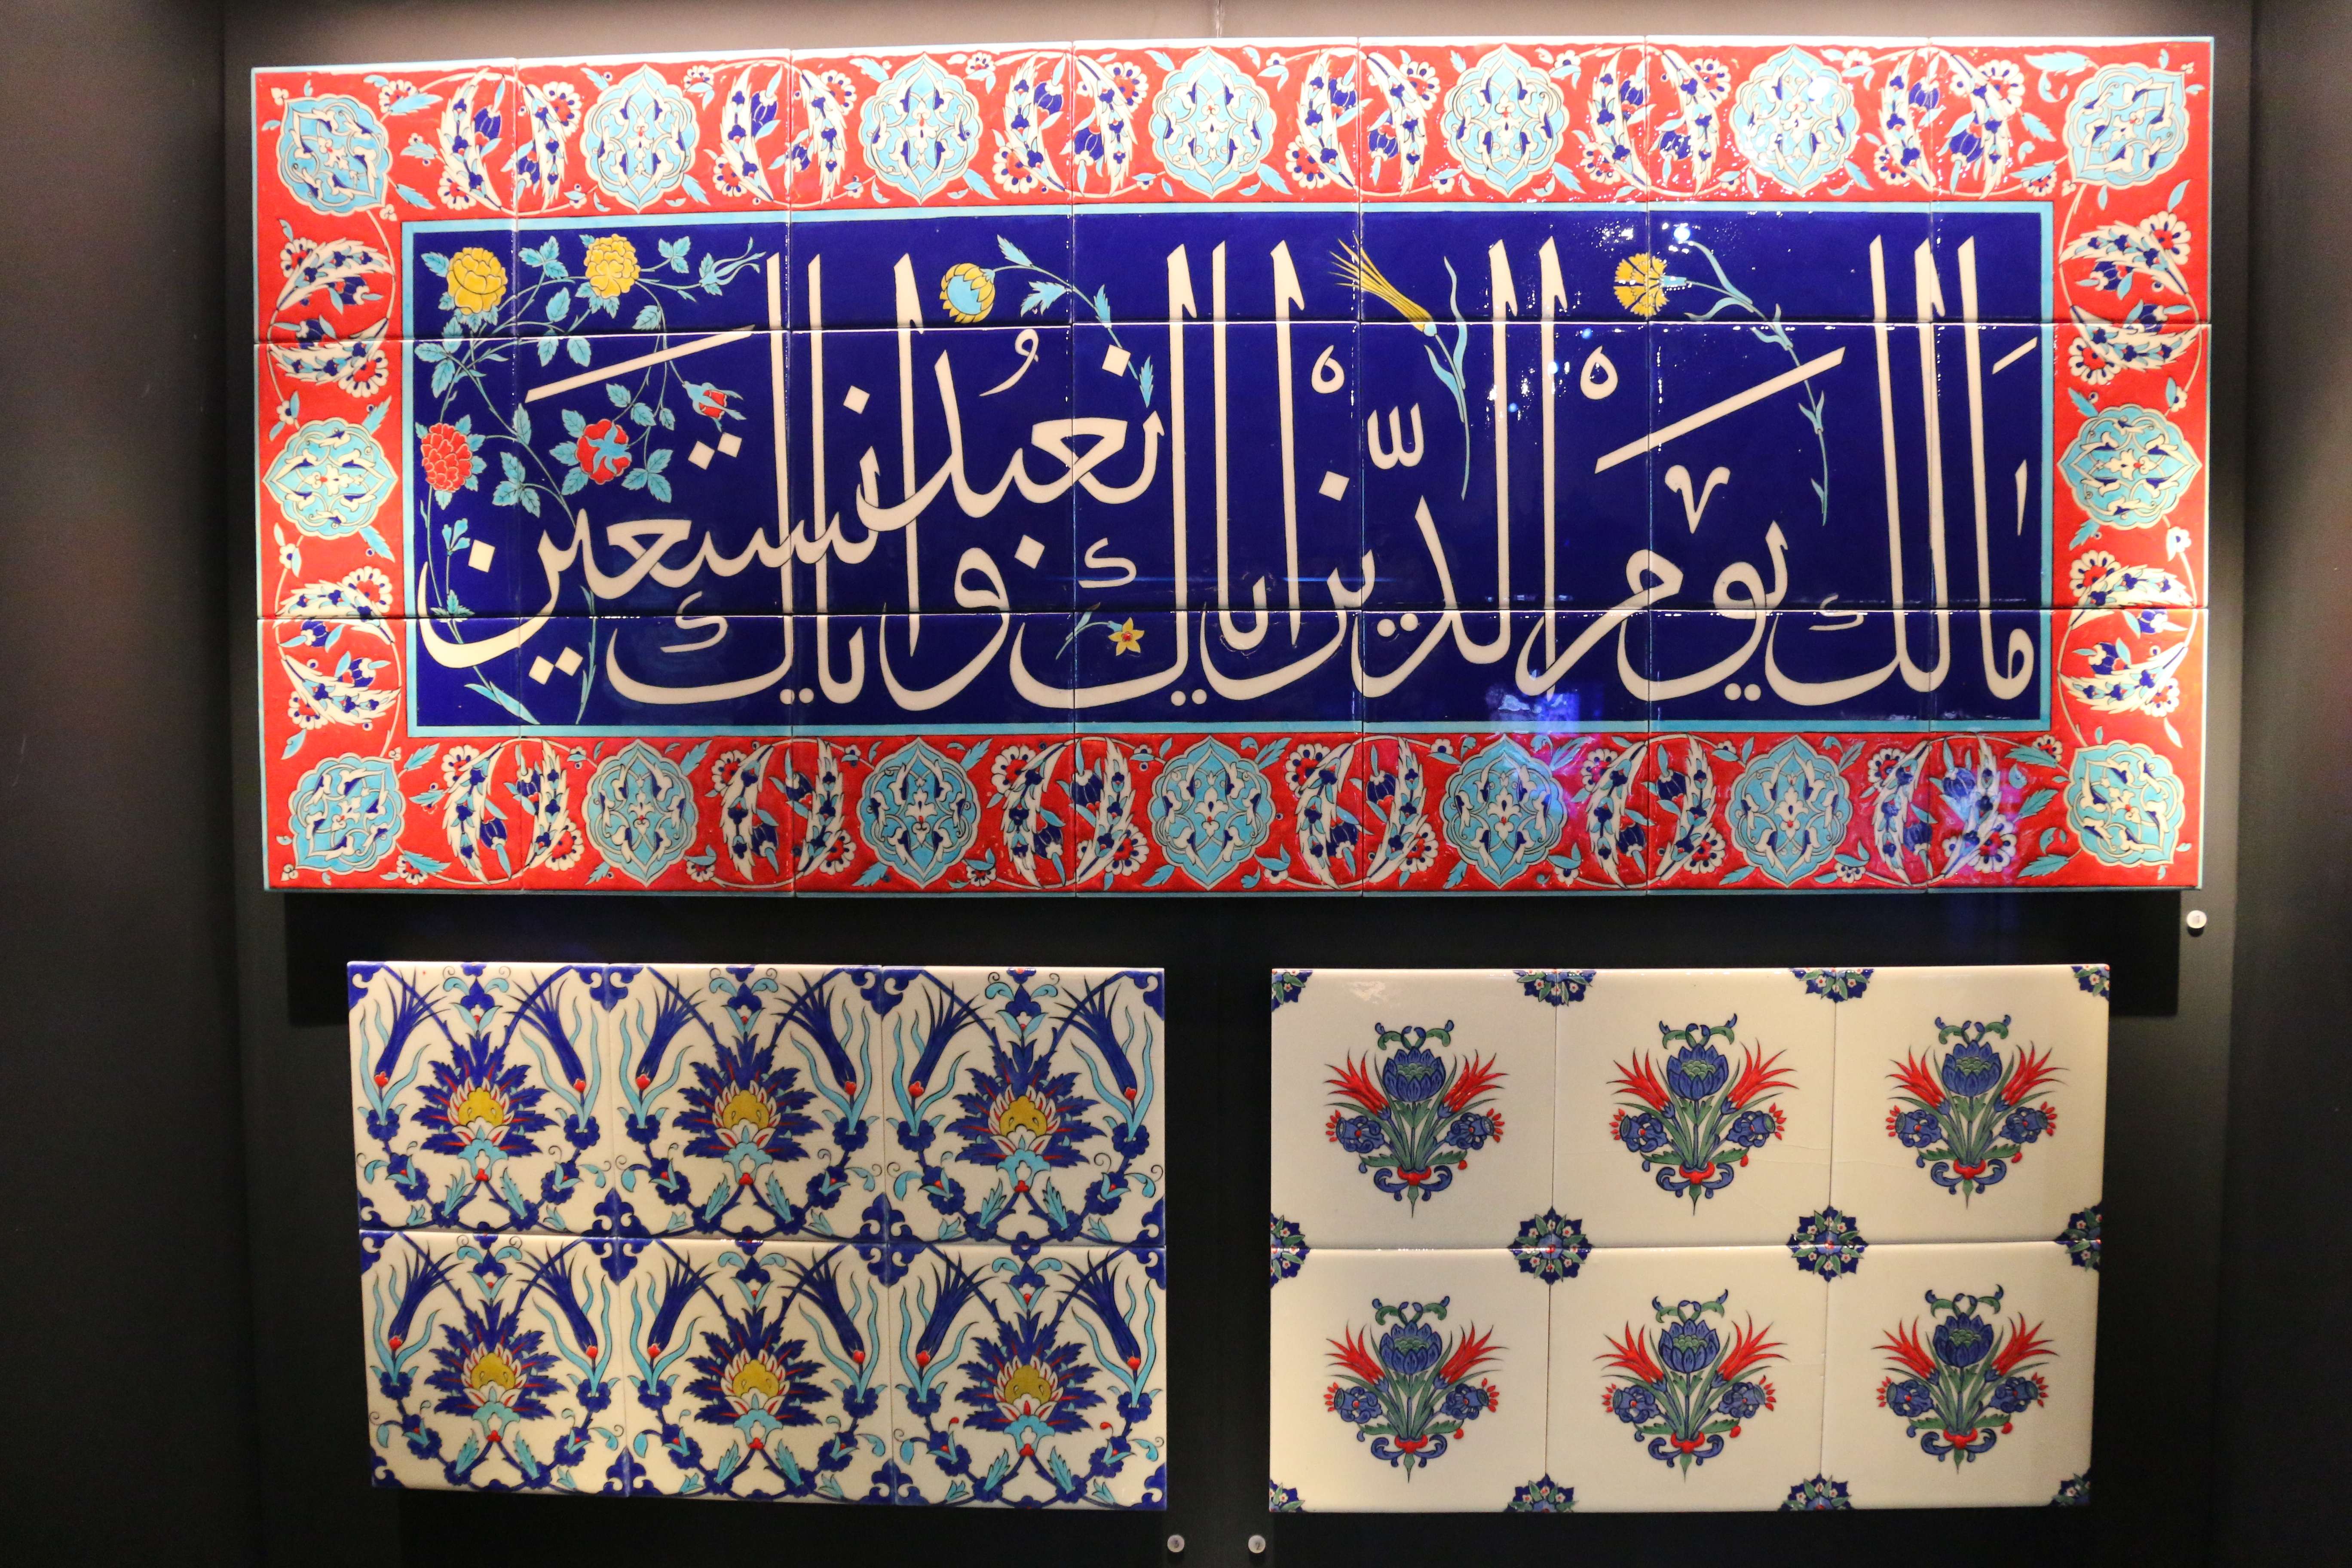 مَالك يوْمْ الدّين اياك نعبدُ واياك نستعين